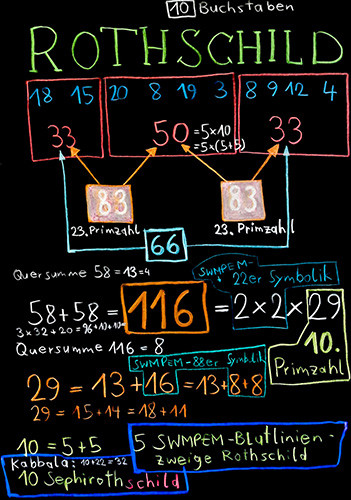 10 Buchstaben
ROTHSCHILD
18 15 20 8 19 3 8 9 12 4
33 50 =5x10 33
=5x(5+5)
83 83
23. Primzahl 23. Primzahl
66
Quersumme 58=13=4
SWMPEM-
22er Symbolik
58+58= 116 = 2x2x29
3x32+20=96+10+10=
Quersumme 116=8
10.
Primzahl
SWMPEM-88er Symbolik
29=13+16=13+8+8
29=15+14=18+11
10=5+5
5 SWMPEM-Blutlinien-
zweige Rothschild
Kabbala: 10+22=32
10 Sephirothschild